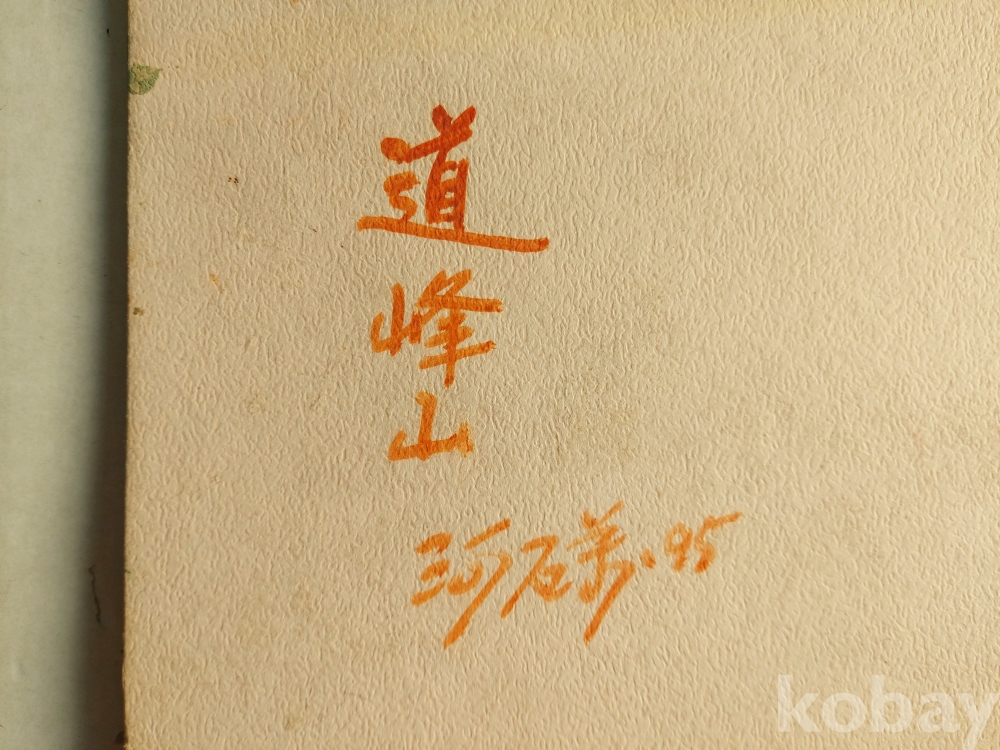 道峰山
河石 · 95
kobay